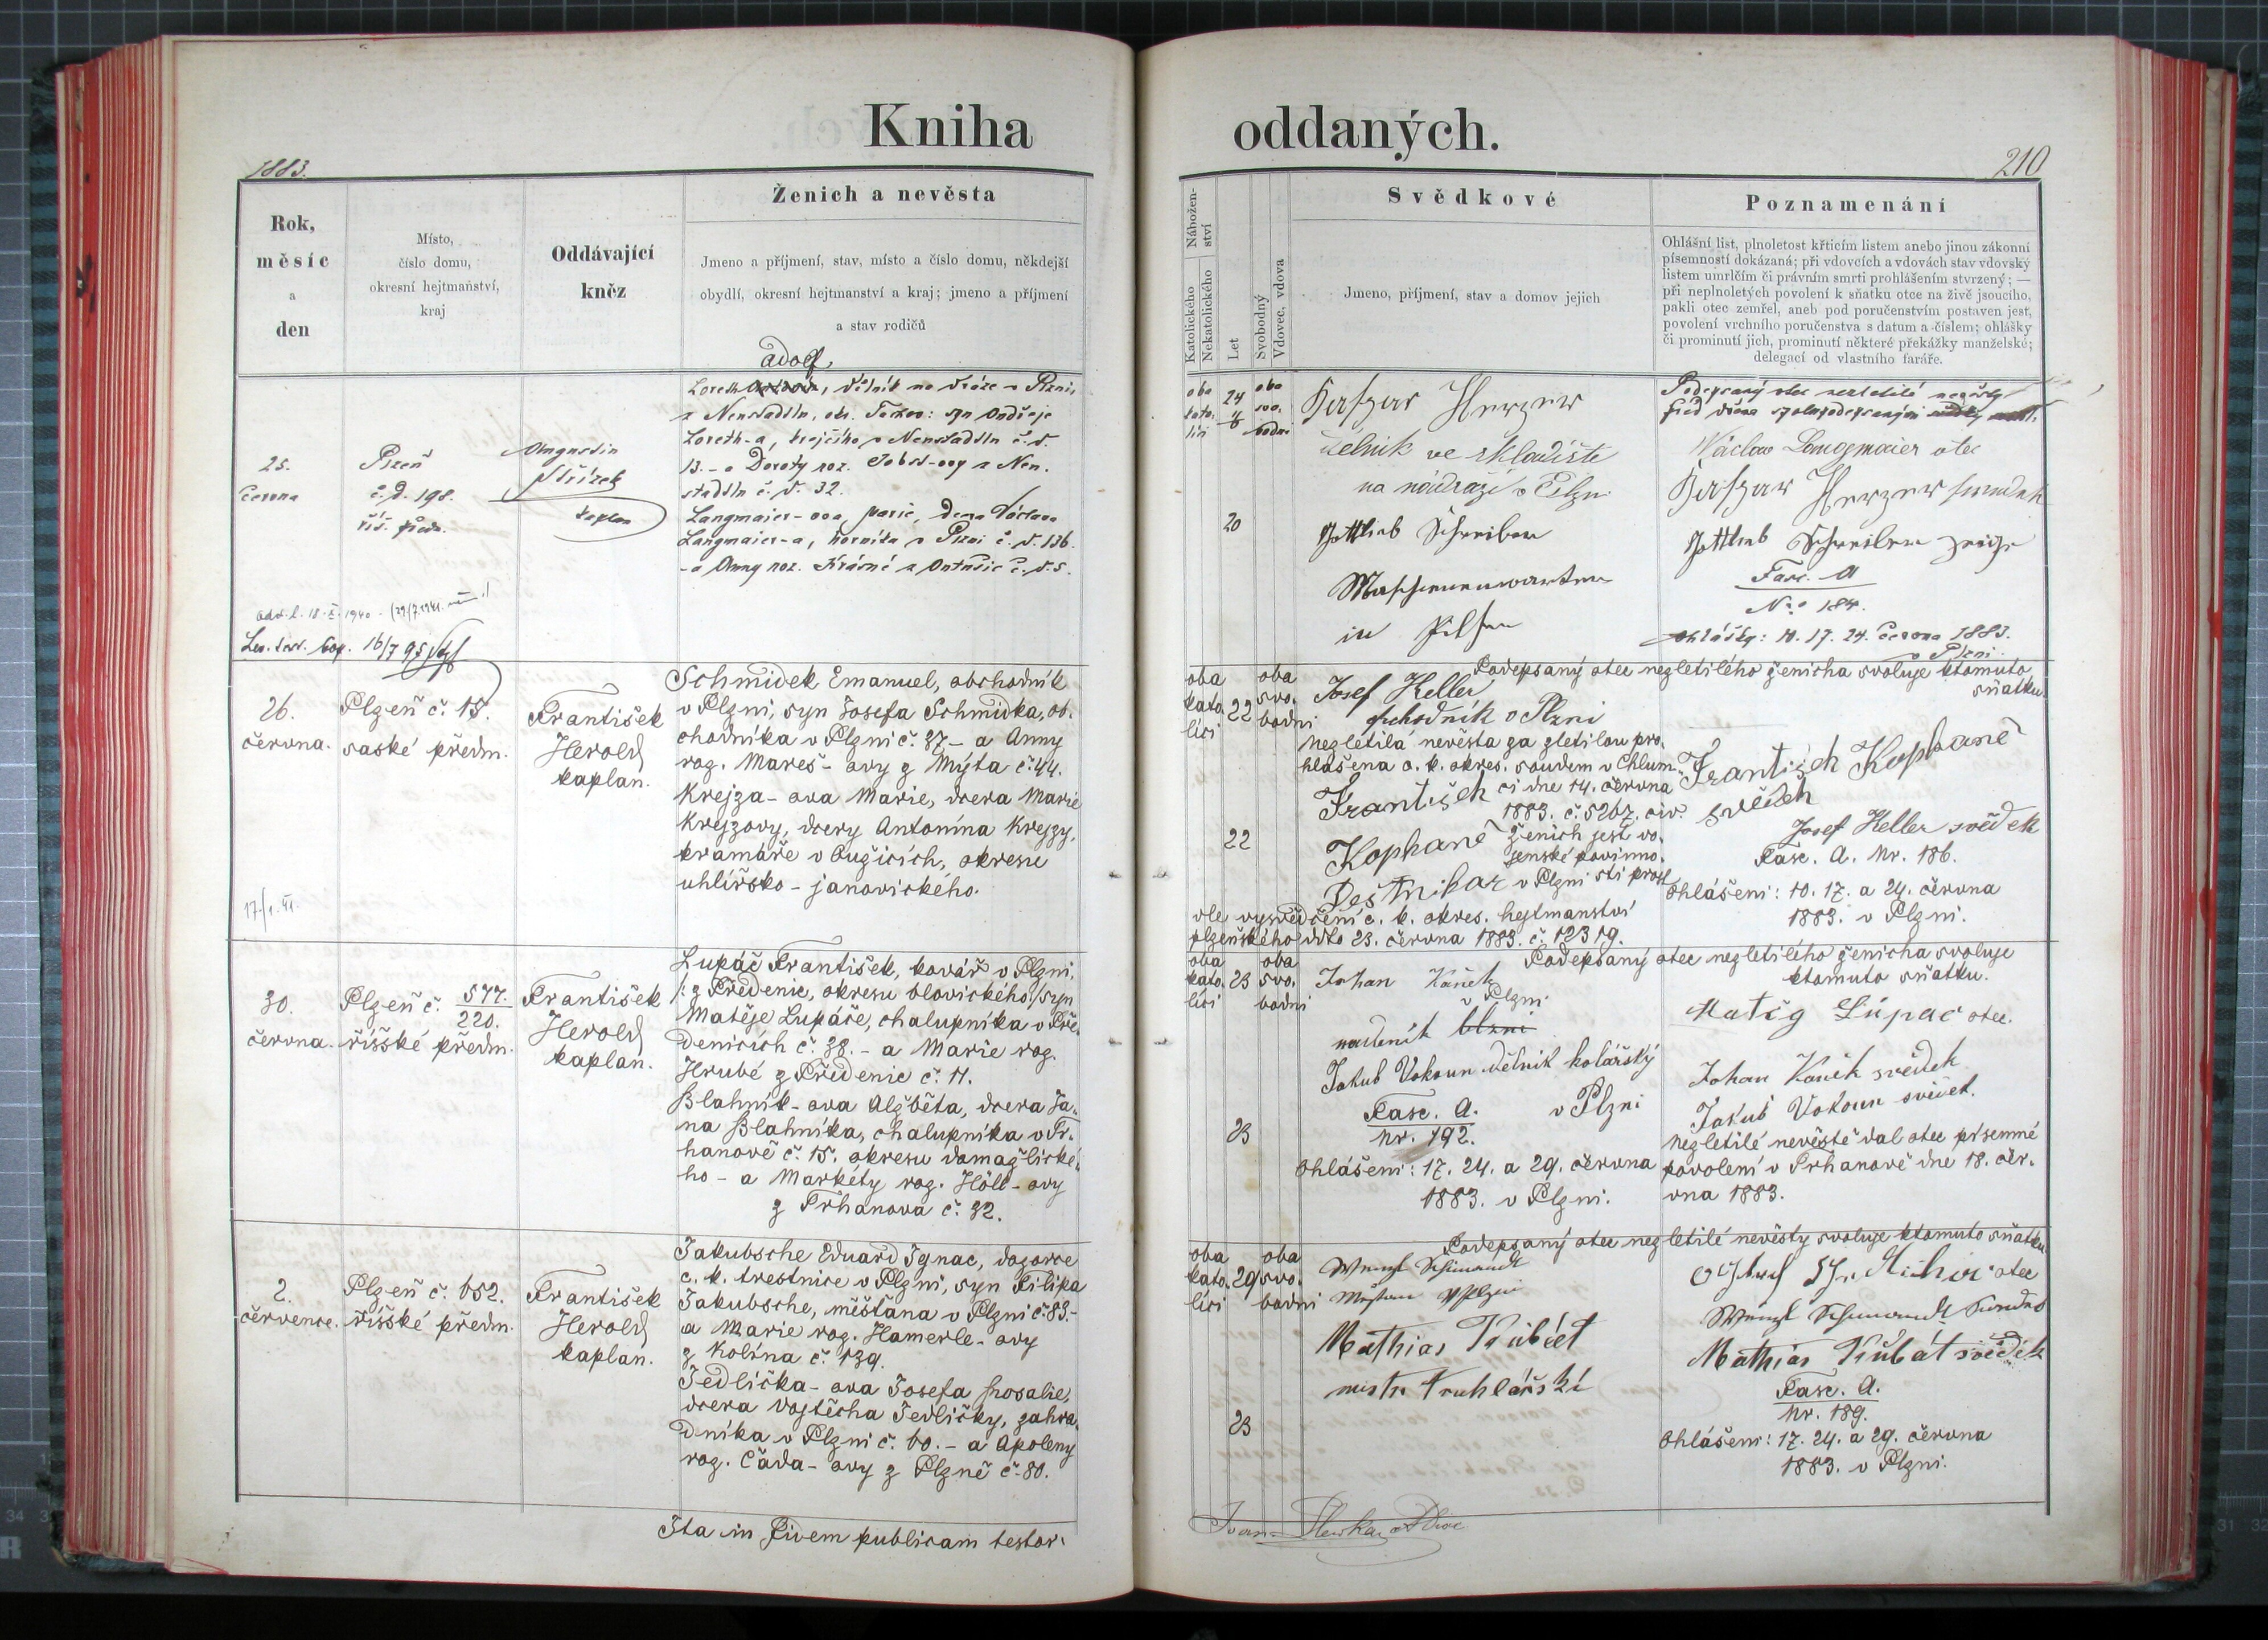 Kniha oddaných.
1883.
210
Rok,
měsíc
a
den
Místo,
číslo domu,
okresní hejtmanství,
kraj
Oddávající
kněz
Ženich a nevěsta
Jmeno a příjmení, stav, místo a číslo domu, někdejší
obydlí, okresní hejtmanství a kraj; jmeno a příjmení
a stav rodičů
Nábožen-
ství
Katolického
Nekatolického
Let
Svobodný
Vdovec, vdova
Svědkové
Jmeno, příjmení, stav a domov jejich
Poznamenání
Ohlášní list, plnoletost křticím listem anebo jinou zákonní
písemností dokázaná; při vdovcích a vdovách stav vdovský
listem umrlčím či právním smrti prohlášením stvrzený; —
při neplnoletých povolení k sňatku otce na živě jsoucího,
pakli otec zemřel, aneb pod poručenstvím postaven jest,
povolení vrchního poručenstva s datum a číslem; ohlášky
či prominutí jich, prominutí některé překážky manželské;
delegací od vlastního faráře.
25.
června
Plzeň
č. d. 198.
říš. předm.
Augustin
Střízek
kaplan
Adolf
Loreth, dělník na dráze v Plzni,
z Neustadtln, okr. Tachov: syn Ondřeje
Loreth-a, krejčího v Neustadtln č. d.
13. - a Doroty roz. Jobst-ovy z Neu-
stadtln č. d. 32.
Langmaier-ova Marie, dcera Václava
Langmaier-a, horníka v Plzni č. d. 136.
- a Anny roz. Krásné z č. d. 5.
oba
kato.
líci
24
oba
svo.
bodni
20
Kaspar Herzer
dělník ve skladiště
na nádraží v Plzni
Gottlieb Schreiber
in Pilsen
Podepsaný otec nezletilé nevěsty
Václav Langmaier otec
Kaspar Herzer
Gottlieb Schreiber Zeuge
Fasc. A
Nro 184.
Ohlášky: 10. 17. 24. června 1883.
v Plzni.
26.
června.
Plzeň č. 15.
saské předm.
František
Herold
kaplan.
Schmidek Emanuel, obchodník
v Plzni, syn Josefa Schmidka, ob.
chodníka v Plzni č. 37 - a Anny
roz. Mareš-ovy z Mýta č. 44.
Krejza-ova Marie, dcera Marie
Krejzovy, dcery Antonína Krejzy,
kramáře v Lužicích, okresu
uhlířsko-janovického.
oba
kato.
líci
22
oba
svo.
bodni
22
Podepsaný otec nezletilého ženicha svoluje ktomuto
sňatku.
Josef Keller
obchodník v Plzni
Nezletilá nevěsta za zletilou pro.
hlášena c. k. okres. soudem v Chlum.
ci dne 14. června
1883. č. 5267. civ.
František
Kophane
Deštnikar v Plzni
Ženich jest vo.
jenské povinno.
sti prost
dle vysvědčení c. k. okres. hejtmanství
plzeňského ddto 23. června 1883. č. 12319.
František Kophane
svědek
Josef Keller svědek
Fasc. A. Nr. 186.
Ohlášení: 10. 17. a 24. června
1883. v Plzni.
30.
června.
Plzeň č. 577.
220.
říšské předm.
František
Herold
kaplan.
Lupáč František, kovář v Plzni,
/: z Předenic, okresu blovického:/ syn
Matěje Lupáče, chalupníka v Pře.
denicích č. 38. - a Marie roz.
Hrubé z Předenic č. 11.
Blahník-ova Alžběta, dcera Ja.
na Blahníka, chalupníka v Tr.
hanově č. 15. okresu domažlické.
ho - a Markéty roz. Höll-ovy
z Trhanova č. 32.
oba
kato.
líci
23
oba
svo.
bodni
23
Podepsaný otec nezletilého ženicha svoluje
ktomuto sňatku.
Johan Kaněk
v Plzni
nadeník
Jakub Vokoun dělník kolářský
v Plzni
Fasc. A.
Nr. 192.
Ohlášení: 17. 24. a 29. června
1883. v Plzni.
Matěg Lúpač otec.
Johan Kaněk svědek
Jakub Vokoun svědek.
Nezletilé nevěstě dal otec písemné
povolení v Trhanově dne 18. čer.
vna 1883.
2.
července.
Plzeň č. 652.
říšské předm.
František
Herold
kaplan.
Jakubsche Eduard Ignac, dozorce
c. k. trestnice v Plzni, syn Filipa
Jakubsche, měšťana v Plzni č. 83. -
a Marie roz. Hamerle-ovy
z Kolína č. 139.
Jedlička-ova Josefa Rosalie,
dcera Vojtěcha Jedličky, zahra.
dníka v Plzni č. 60. - a Apoleny
roz. Čada-ovy z Plzně č. 80.
oba
kato.
líci
29
oba
svo.
bodni
23
Podepsaný otec nezletilé nevěsty svoluje ktomuto sňatku.
Wenzl
Mathias Trubáct
mistr truhlářský
otec
Wenzl
Mathias Trubát svědek
Fasc. A.
Nr. 189.
Ohlášení: 17. 24. a 29. června
1883. v Plzni.
Ita in fidem publicam testor: